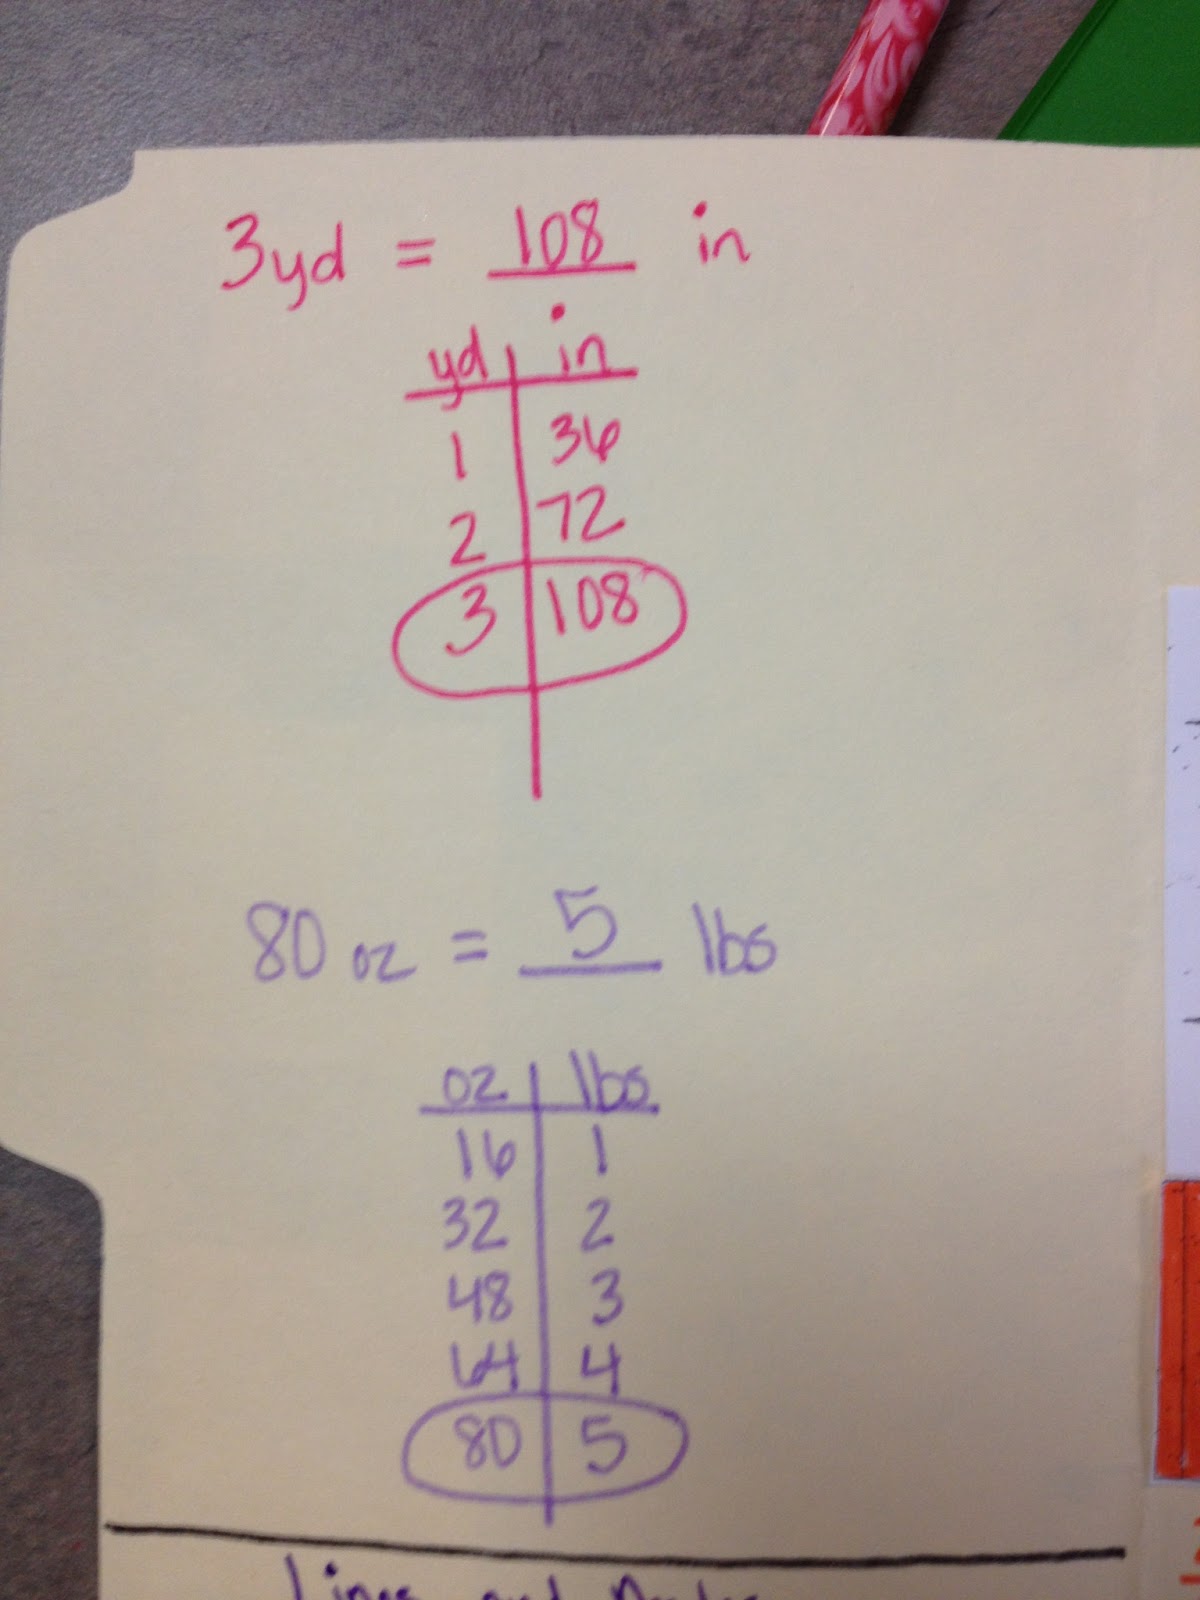 3yd = 108 in
yd in
1 36
2 72
3 108
80 oz = 5 lbs
oz lbs
16 1
32 2
48 3
64 4
80 5
Lines and